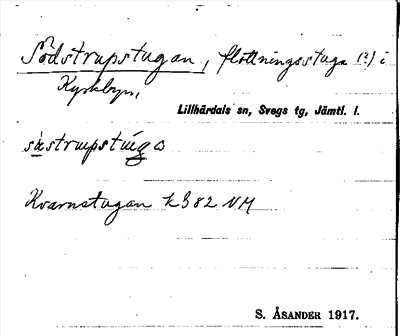 Södstrupstugan, flottningsstuga (?) i
Kyrkbyn,
Lillhärdals sn, Svegs tg, Jämtl. l.
Kvarnstugan k 382 NM
S. ÅSANDER 1917.